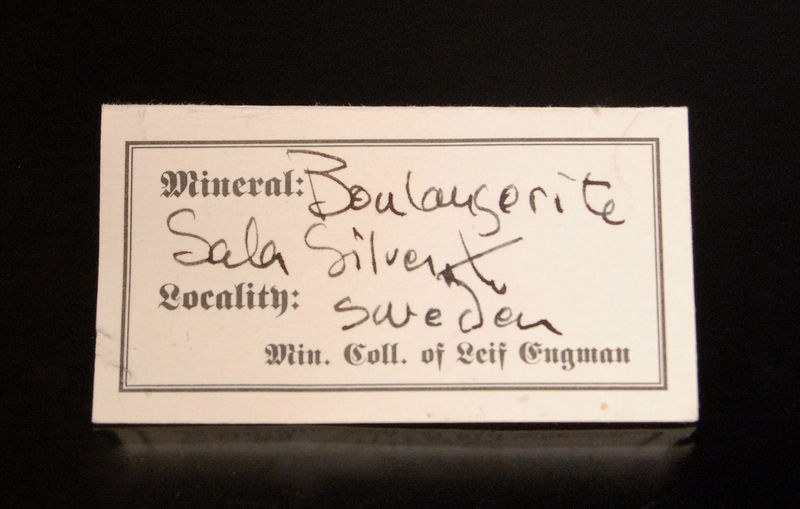 Mineral: Boulangerite
Sala Silver
Locality: Sweden
Min. Coll. of Leif Engman